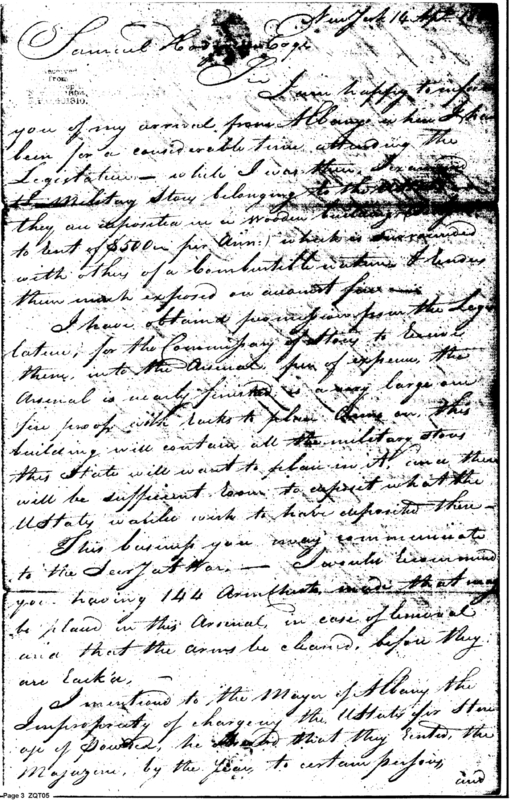 New York 14 Apl.
Samuel Hodgdon Esqr
Sir
I am happy to inform
you of my arrival from Albany where I have
been for a considerable time attending the
Legislature — while I was there, I examined
the Military Stores belonging to the
they are deposited in a wooden building
to rent of $500 per Ann:) which is surrounded
with others of a Combustible nature & renders
them much exposed on account fire —
I have obtained permission from the Legis
lature, for the Commissary of Stores to remove
them, into the Arsenal free of expence, the
Arsenal is nearly finished is a very large one
fire proof with racks to place Arms on, this
building will contain all the military stores
this State will want to place in it, and there
will be sufficient Room to deposit what the
UStates would wish to have deposited there —
This business you may communicate
to the Secry at War, — I would recommend
you having 144 Arm Chests made that may
be placed in this Arsenal, in case of removal
and that the arms be cleaned, before they
are Pack'd, —
I mentioned to the Mayor of Albany the
Impropriety of chargeing the UStates for Stor
age of Powder, he that they rented, the
Magazine, by the Year, to certain persons,
and
Page 3 ZQT05